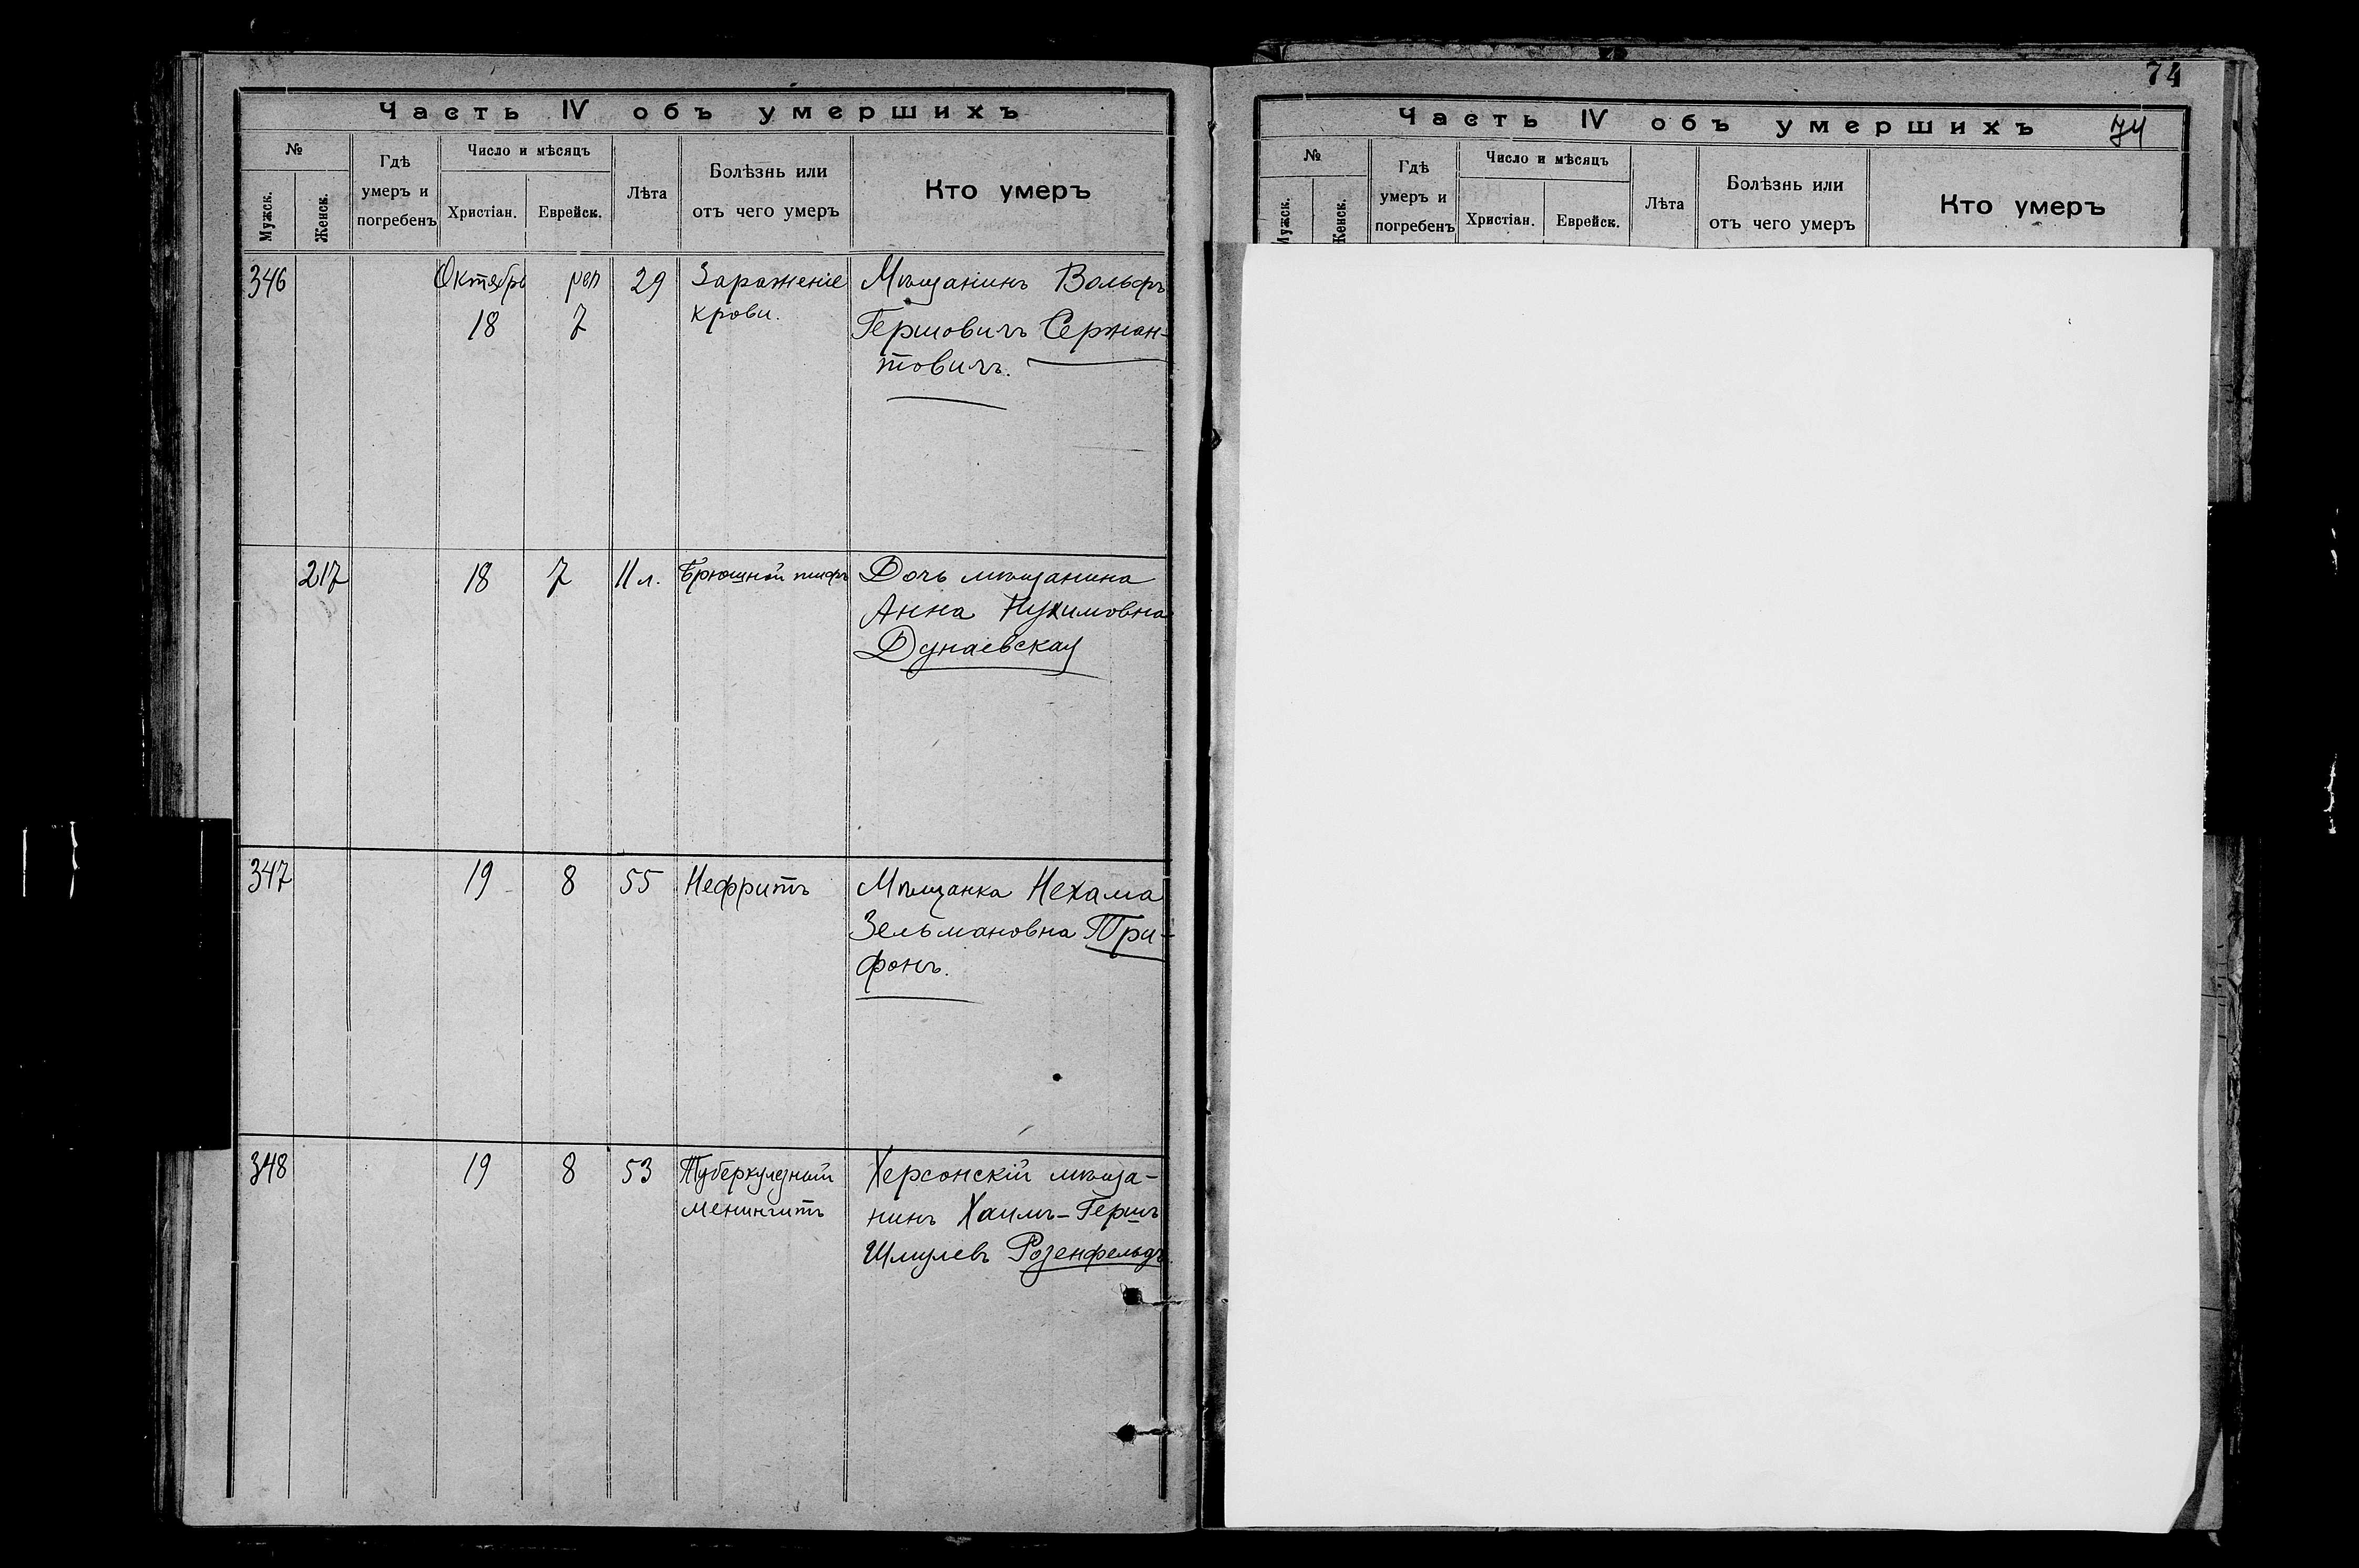 74
Часть IV объ умершихъ
№
Мужск.
Женск.
Гдѣ
умеръ и
погребенъ
Число и мѣсяцъ
Христіан.
Еврейск.
Лѣта
Болѣзнь или
отъ чего умеръ
Кто умеръ
346
Октябрь
18
7
29
Зараженіе
крови.
Мѣщанинъ Вольфъ
Гершовичъ Сержан-
товичъ.
217
18
7
11 л.
Брюшной тифъ
Дочь мѣщанина
Анна Нухимовна
Дунаевская
347
19
8
55
Нефритъ
Мѣщанка Нехама
Зельмановна Три-
фонъ.
348
19
8
53
Туберкулезный
менингитъ
Херсонскій мѣща-
нинъ Хаимъ-Гершъ
Шмулевъ Розенфельдъ.
Часть IV объ умершихъ
74
№
Мужск.
Женск.
Гдѣ
умеръ и
погребенъ
Число и мѣсяцъ
Христіан.
Еврейск.
Лѣта
Болѣзнь или
отъ чего умеръ
Кто умеръ